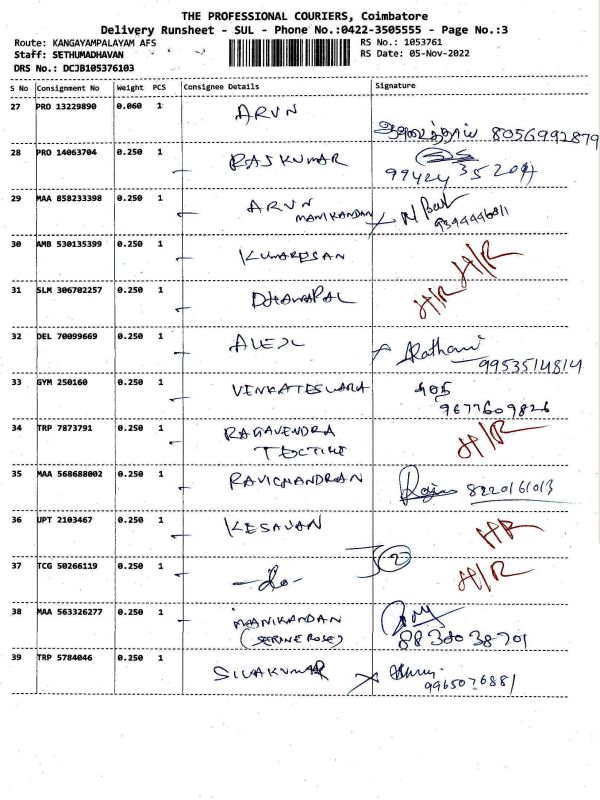 THE PROFESSIONAL COURIERS, Coimbatore
Delivery Runsheet - SUL - Phone No.:0422-3505555 - Page No.:3
Route: KANGAYAMPALAYAM AFS
RS No.: 1053761
Staff: SETHUMADHAVAN
RS Date: 05-Nov-2022
DRS No.: DCJB105376103
S No Consignment No Weight PCS Consignee Details Signature
27 PRO 13229890 0.060 1 ARUN
8056992879
28 PRO 14063704 0.250 1 RAJKUMAR
29 MAA 858233398 0.250 1 ARUN
MANIKANDAN
30 AMB 530135399 0.250 1 KUMARESAN H/R
31 SLM 306702257 0.250 1 DHANAPAL H/R
32 DEL 70099669 0.250 1
9953514814
33 GYM 250160 0.250 1 VENKATESWARA
9677609826
34 TRP 7873791 0.250 1 RAGAVENDRA H/R
35 MAA 568688002 0.250 1 RAVICHANDRAN 8220161013
36 UPT 2103467 0.250 1 KESAVAN HR
37 TCG 50266119 0.250 1 -do- 2 H/R
38 MAA 563326277 0.250 1 MANIKANDAN
39 TRP 5784046 0.250 1 SIVAKUMAR
9965076881